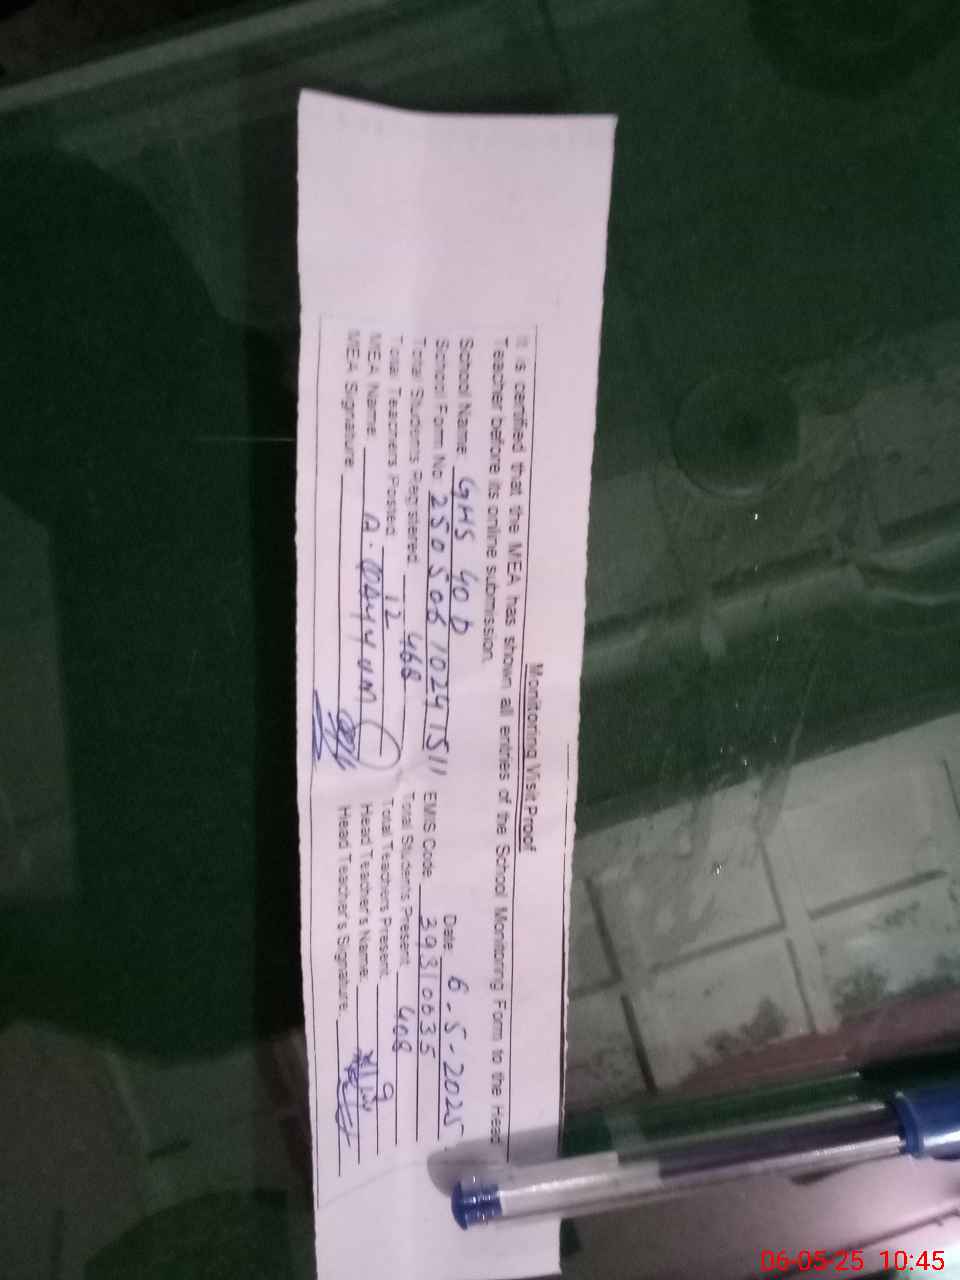 Monitoring Visit Proof
It is certified that the MEA has shown all entries of the School Monitoring Form to the Head
Teacher before its online submission.
School Name: GHS 40 D Date: 6-5-2025
School Form No: 25050610241511 EMIS Code: 39310035
Total Students Registered: 468 Total Students Present: 408
Total Teachers Posted: 12 Total Teachers Present: 9
MEA Name: A. QAYYUM Head Teacher's Name:
MEA Signature: Head Teacher's Signature:
06-05-25 10:45